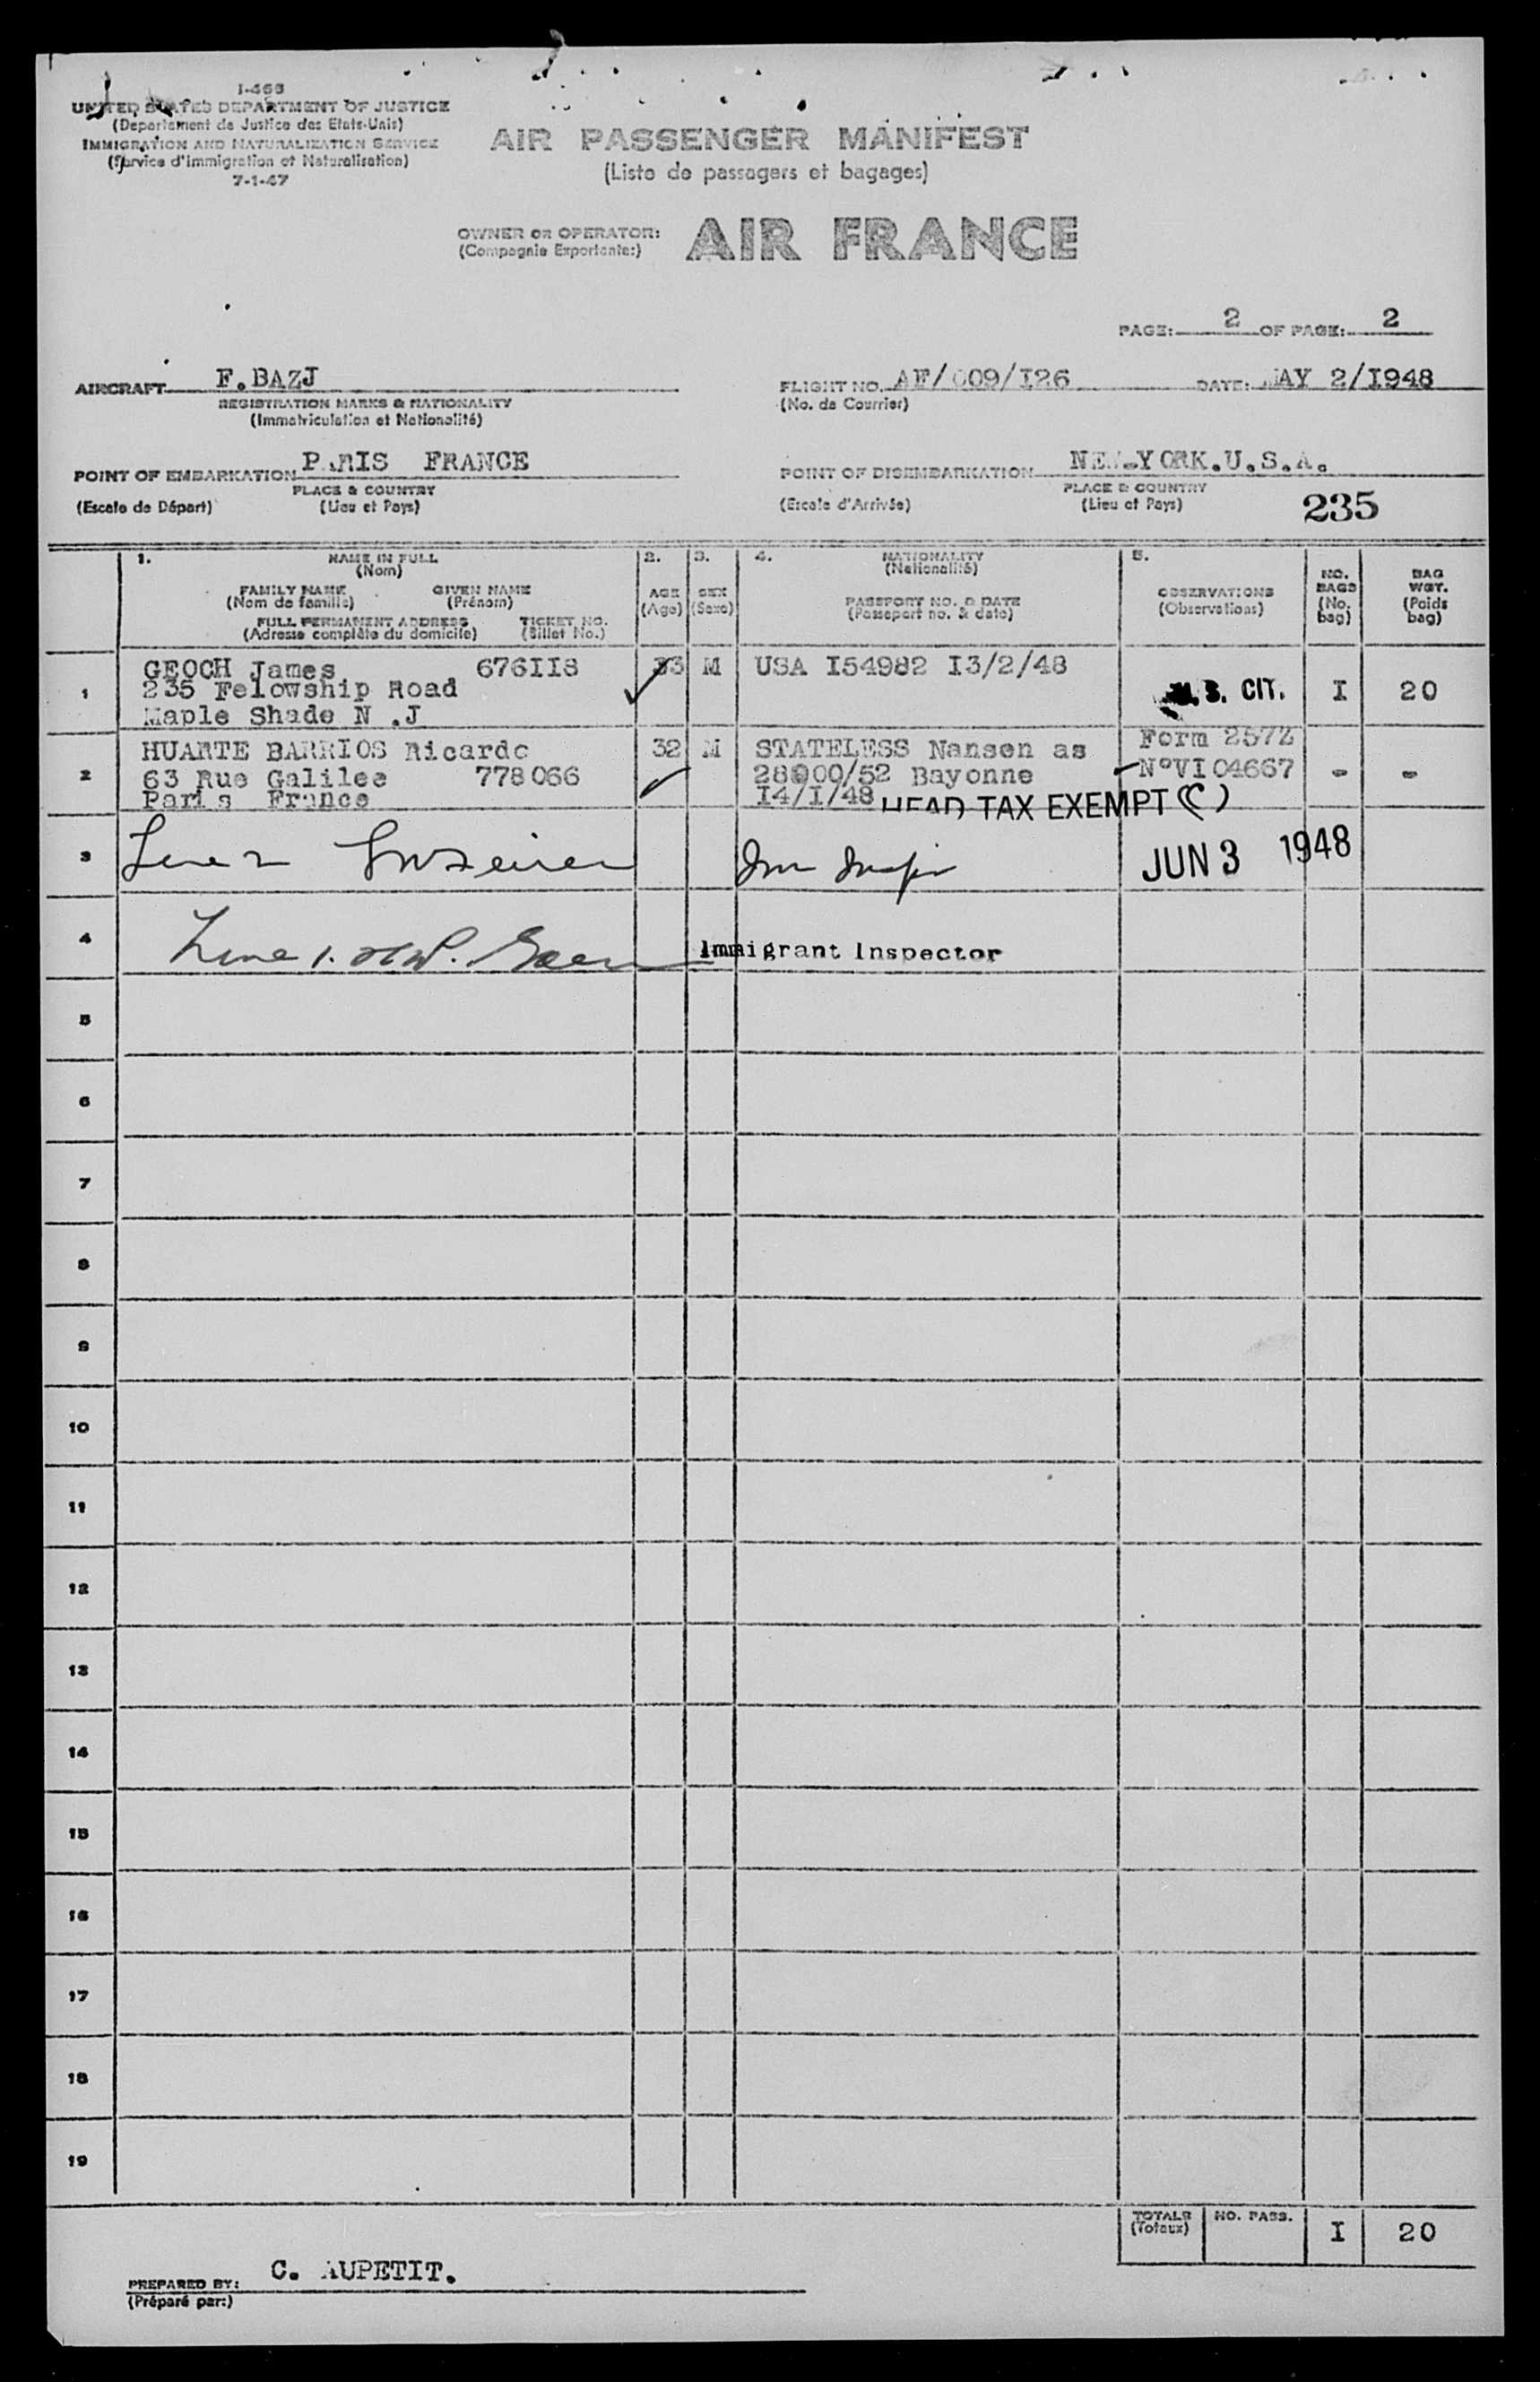 I-466
UNITED STATES DEPARTMENT OF JUSTICE
(Departement de Justice des Etats-Unis)
IMMIGRATION AND NATURALIZATION SERVICE
(Service d'immigration et Naturalisation)
7-1-47
AIR PASSENGER MANIFEST
(Liste de passagers et bagages)
OWNER OR OPERATOR: AIR FRANCE
(Compagnie Exportante:)
PAGE: 2 OF PAGE: 2
AIRCRAFT F.BAZJ
REGISTRATION MARKS & NATIONALITY
(Immatriculation et Nationalité)
FLIGHT NO. AF/009/I26 DATE: MAY 2/I948
(No. de Courrier)
POINT OF EMBARKATION PARIS FRANCE
PLACE & COUNTRY
(Escale de Départ) (Lieu et Pays)
POINT OF DISEMBARKATION NEW-YORK.U.S.A.
PLACE & COUNTRY
(Escale d'Arrivée) (Lieu et Pays)
235
1. NAME IN FULL
(Nom)
FAMILY NAME GIVEN NAME
(Nom de famille) (Prénom)
FULL PERMANENT ADDRESS TICKET NO.
(Adresse complète du domicile) (Billet No.)
2.
AGE
(Age)
3.
SEX
(Sexe)
4. NATIONALITY
(Nationalité)
PASSPORT NO. & DATE
(Passeport no. & date)
5.
OBSERVATIONS
(Observations)
NO.
BAGS
(No.
bag)
BAG
WGT.
(Poids
bag)
1
GEOCH James 676II8 33 M USA I54982 I3/2/48
235 Fellowship Road U.S. CIT. I 20
Maple Shade N .J
2
HUARTE BARRIOS Ricardo 32 M STATELESS Nansen as Form 257Z
63 Rue Galilee 778066 28000/52 Bayonne N°VI04667 - -
Paris France I4/I/48 HEAD TAX EXEMPT (C)
3
JUN 3 1948
4
Line 1.
Immigrant Inspector
5
6
7
8
9
10
11
12
13
14
15
16
17
18
19
TOTALS NO. PASS. I 20
(Totaux)
PREPARED BY: C. AUPETIT.
(Préparé par:)